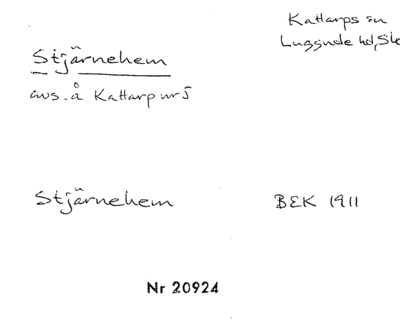 Kattarps sn
Luggude hd, Sk
Stjärnehem
avs. å Kattarp nr 5
Stjärnehem BEK 1911
Nr 20924